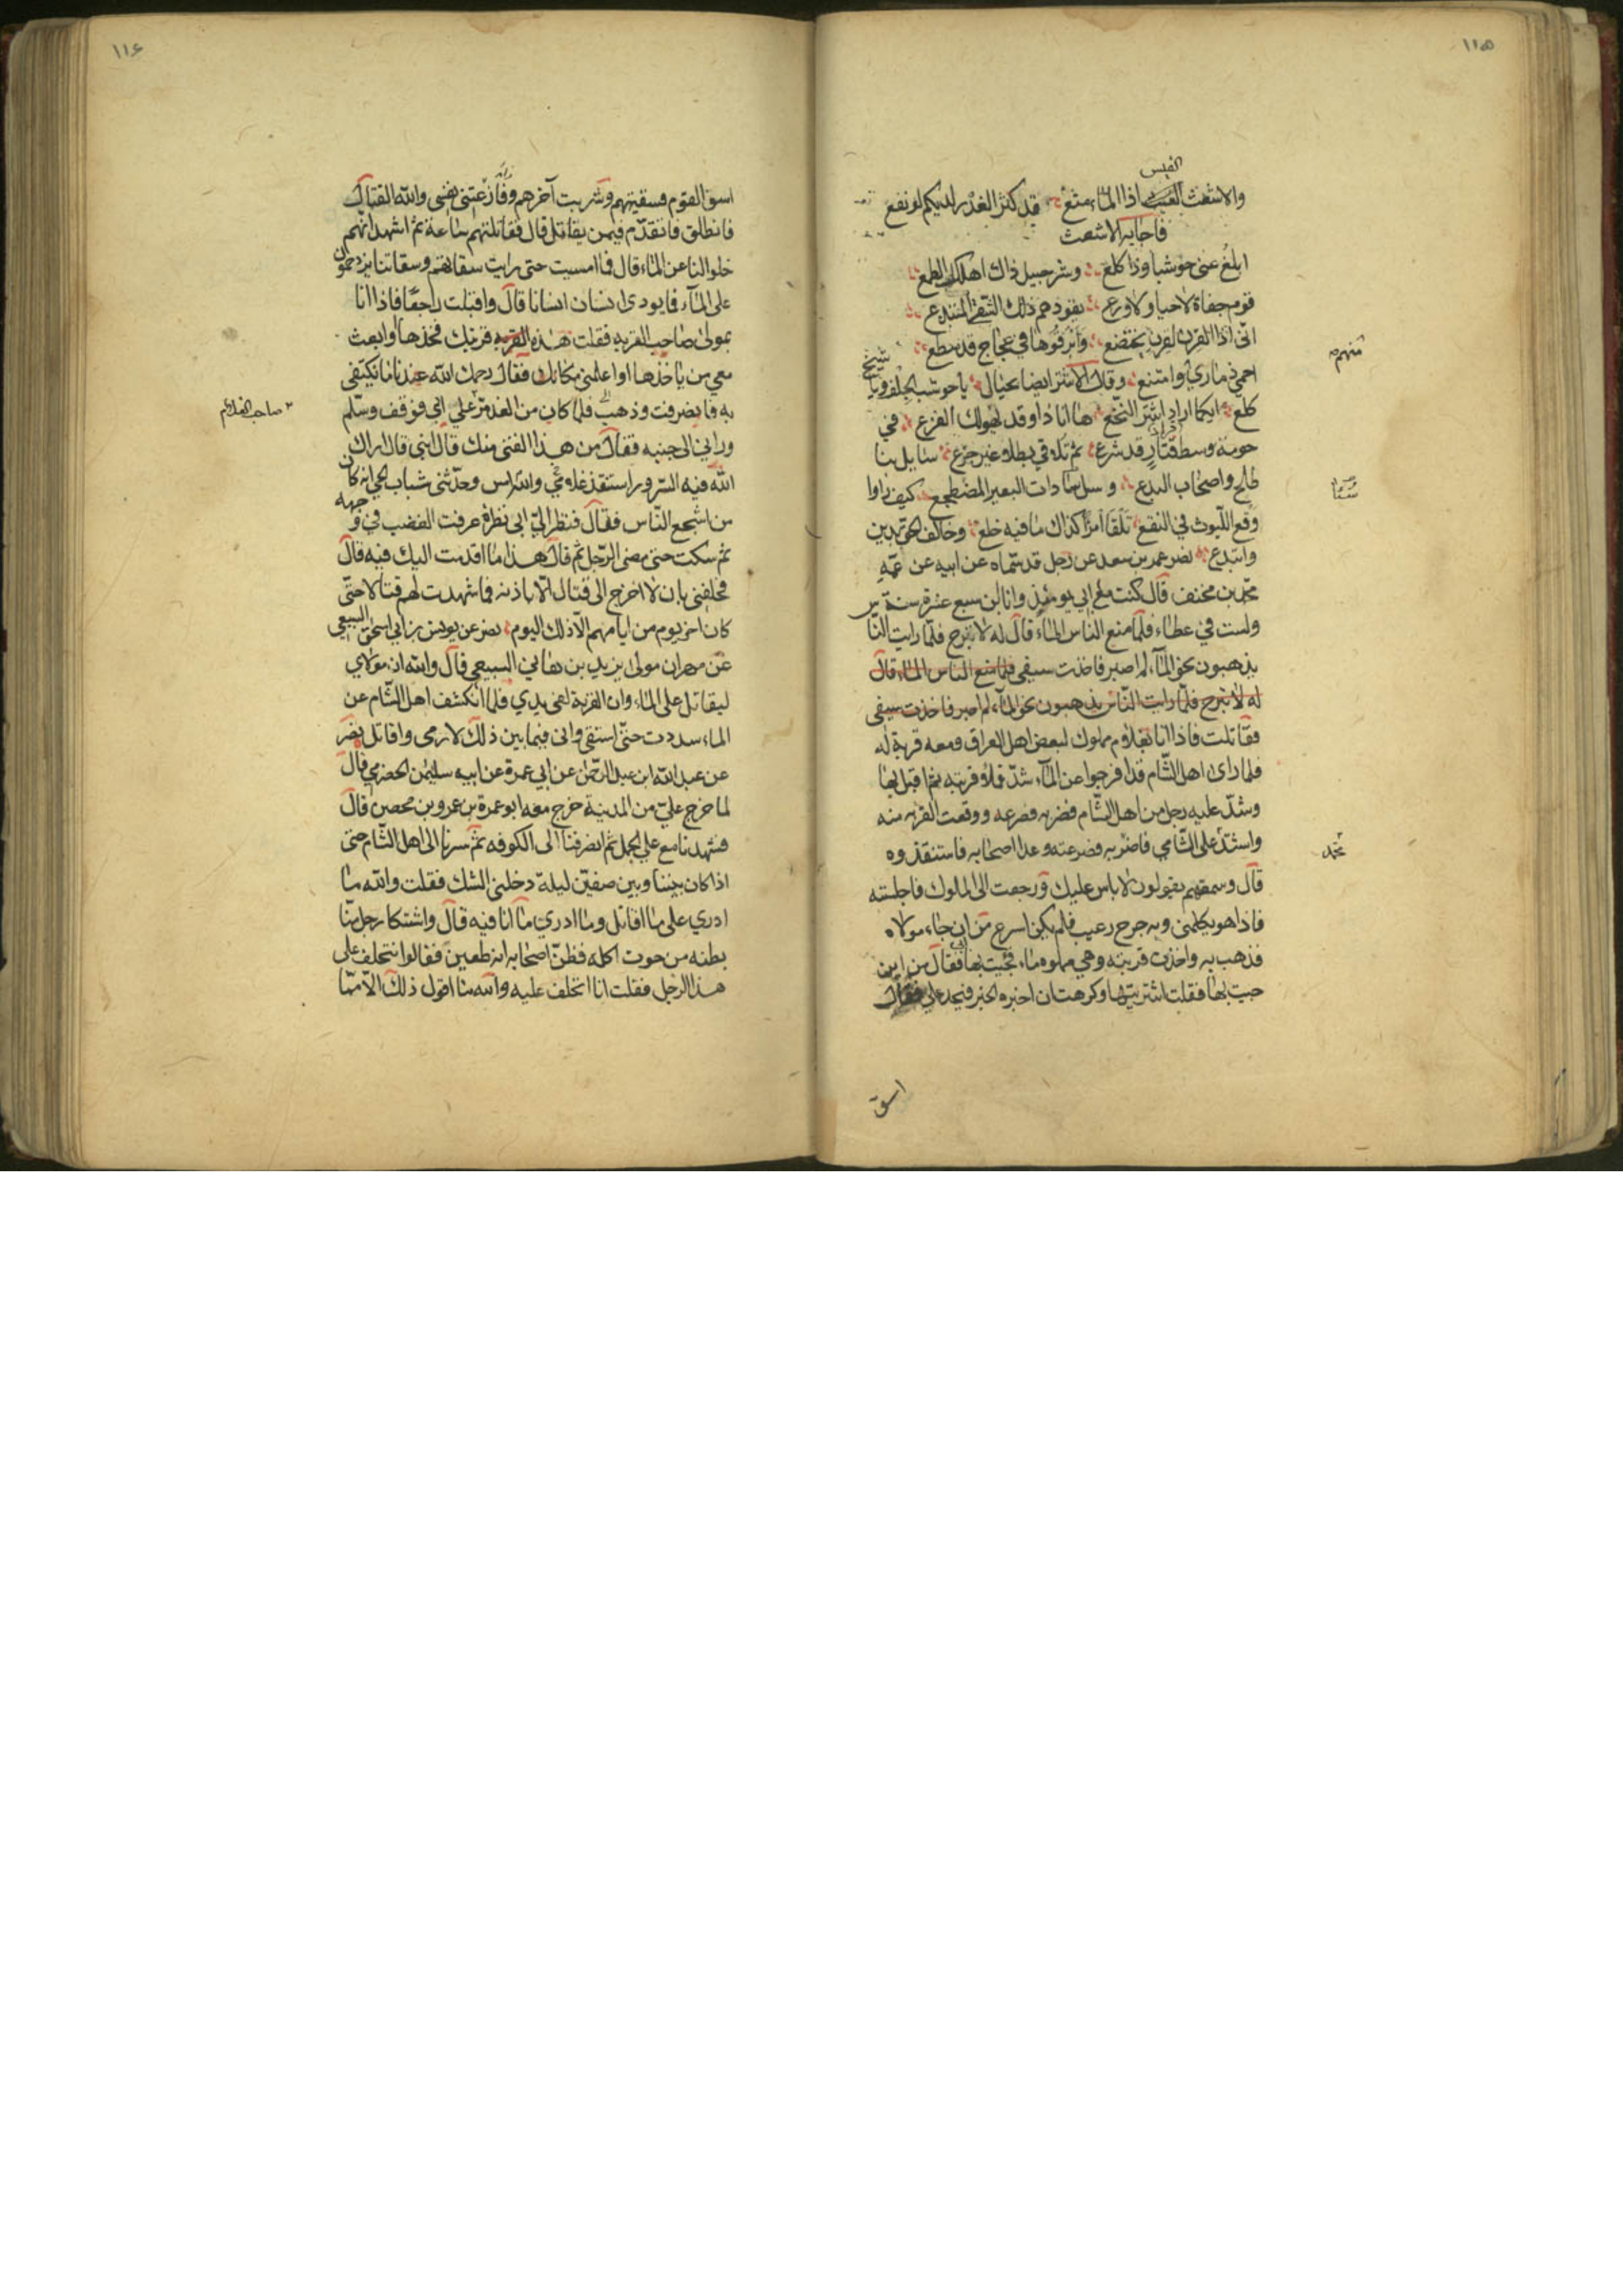 ١١٥
القيس
والاشعث الغيث اذا الماء منع قد كثر الغدر لديكم لو نفع
فاجابه الاشعث
ابلغ عنى حوشبا وذا كلع وشرحبيل ذاك اهلك الطمع
قوم جفاة لا حيا ولا ورع يقودهم ذلك الشقي المبتدع
انى اذا القرن لقرن يختضع وابرقوها في عجاج قد سطع
منهم
احمي ذماري وامتنع وقال الاشتر ايضا بحيال يا حوشب الجلف ويا شيخ
كلع ايكما اراد اشتر النخع ها انا ذا وقد يهولك الفزع في
حومة وسط قرار قد شرع ثم تلاقي بطلا غير جزع سايل بنا
طلح واصحاب البدع وسل بنا ذات البعير المضطجع كيف راوا
وقع الليوث في النقع تلقا امرا كذاك ما فيه خلع وخالف الحق بدين
وابتدع نصر عمر بن سعد عن رجل قد سماه عن ابيه عن عمه
محمد بن مخنف قال كنت مع ابي يومئذ وانا ابن سبع عشرة سنة
ولست في عطاء فلما منع الناس الماء قال له لا تبرح فلما رايت الناس
يذهبون نحو الماء لم اصبر فاخذت سيفى فلما منع الناس الماء قال
له لا تبرح فلما رايت الناس يذهبون نحو الماء لم اصبر فاخذت سيفى
فقاتلت فاذا انا بغلام مملوك لبعض اهل العراق ومعه قربة له
فلما راى اهل الشام قد افرجوا عن الماء شد فملاء قربته ثم اقبل بها
وشد عليه رجل من اهل الشام فضربه فصرعه ووقعت القربه منه
واشتد على الشامي فاضربه فصرعته وعدا اصحابه فاستنقذوه
قال وسمعتهم يقولون لا باس عليك ورجعت الى المملوك فاجلسته
فاذا هو يكلمنى وبه جرح رعيب فلم يكن اسرع من ان جاء مولاه
فذهب به واخذت قربته وهي مملوه ماء فجئت بها ابي فقال من اين
جيت بها فقلت اشتريتها وكرهت ان اخبره الخبر فيجد علي فقال
اسق
١١٦
اسق القوم فسقيتهم وشربت آخرهم ونازعتنى نفسى والله القتال
فانطلق فاتقدم فيمن يقاتل قال فقاتلتهم ساعة ثم اشهد انهم
خلوا لنا عن الماء قال فما امسيت حتى رايت سقاتهم وسقاتنا يزدحمون
على الماء فما يودى انسان انسانا قال واقبلت راجعا فاذا انا
بمولى صاحب القربه فقلت هذه القربه قربتك فخذها او ابعث
معي من ياخذها او اعلمنى مكانك فقال رحمك الله عندنا ما نكتفى
به فانصرفت وذهب فلما كان من الغد مر علي ابي فوقف وسلم
صاحب الغلام
وراني الى جنبه فقال من هذا الفتى منك قال ابنى قال اراك
الله فيه السرور استنقذ غلامي والله امس وحدثنى شباب الحي انه كان
من اشجع الناس فقال فنظر الي ابي نظرة عرفت الغضب في وجهه
ثم سكت حتى مضى الرجل ثم قال هذا ما اقدمت اليك فيه قال
فحلفنى بان لا اخرج الى قتال الا باذنه فما شهدت لهم قتالا حتى
كان اخر يوم من ايامهم الا ذلك اليوم نصر عن يونس بن ابي اسحق السبيعي
عن مهران مولى يزيد بن هاني السبيعي قال والله ان مولاي
ليقاتل على الماء وان القربة لفى يدي فلما انكشف اهل الشام عن
الماء سددت حتى استقى وانى فيما بين ذلك لارمى واقاتل نصر
عن عبد الله ابن عبد الرحمن عن ابي عمرة عن ابيه سليمن الحضرمي قال
لما خرج علي من المدينة خرج معه ابو عمرة بن عمرو بن محصن قال
فشهدنا مع علي الجمل ثم انصرفنا الى الكوفه ثم سرنا الى اهل الشام حتى
اذا كان بيننا وبين صفين ليلة دخلنى الشك فقلت والله ما
ادري على ما اقاتل وما ادري ما انا فيه قال واشتكا رجل منا
بطنه من حوت اكله فظن اصحابه انه طعين فقالوا نتخلف على
هذا الرجل فقلت انا اتخلف عليه والله ما اقول ذلك الا مما